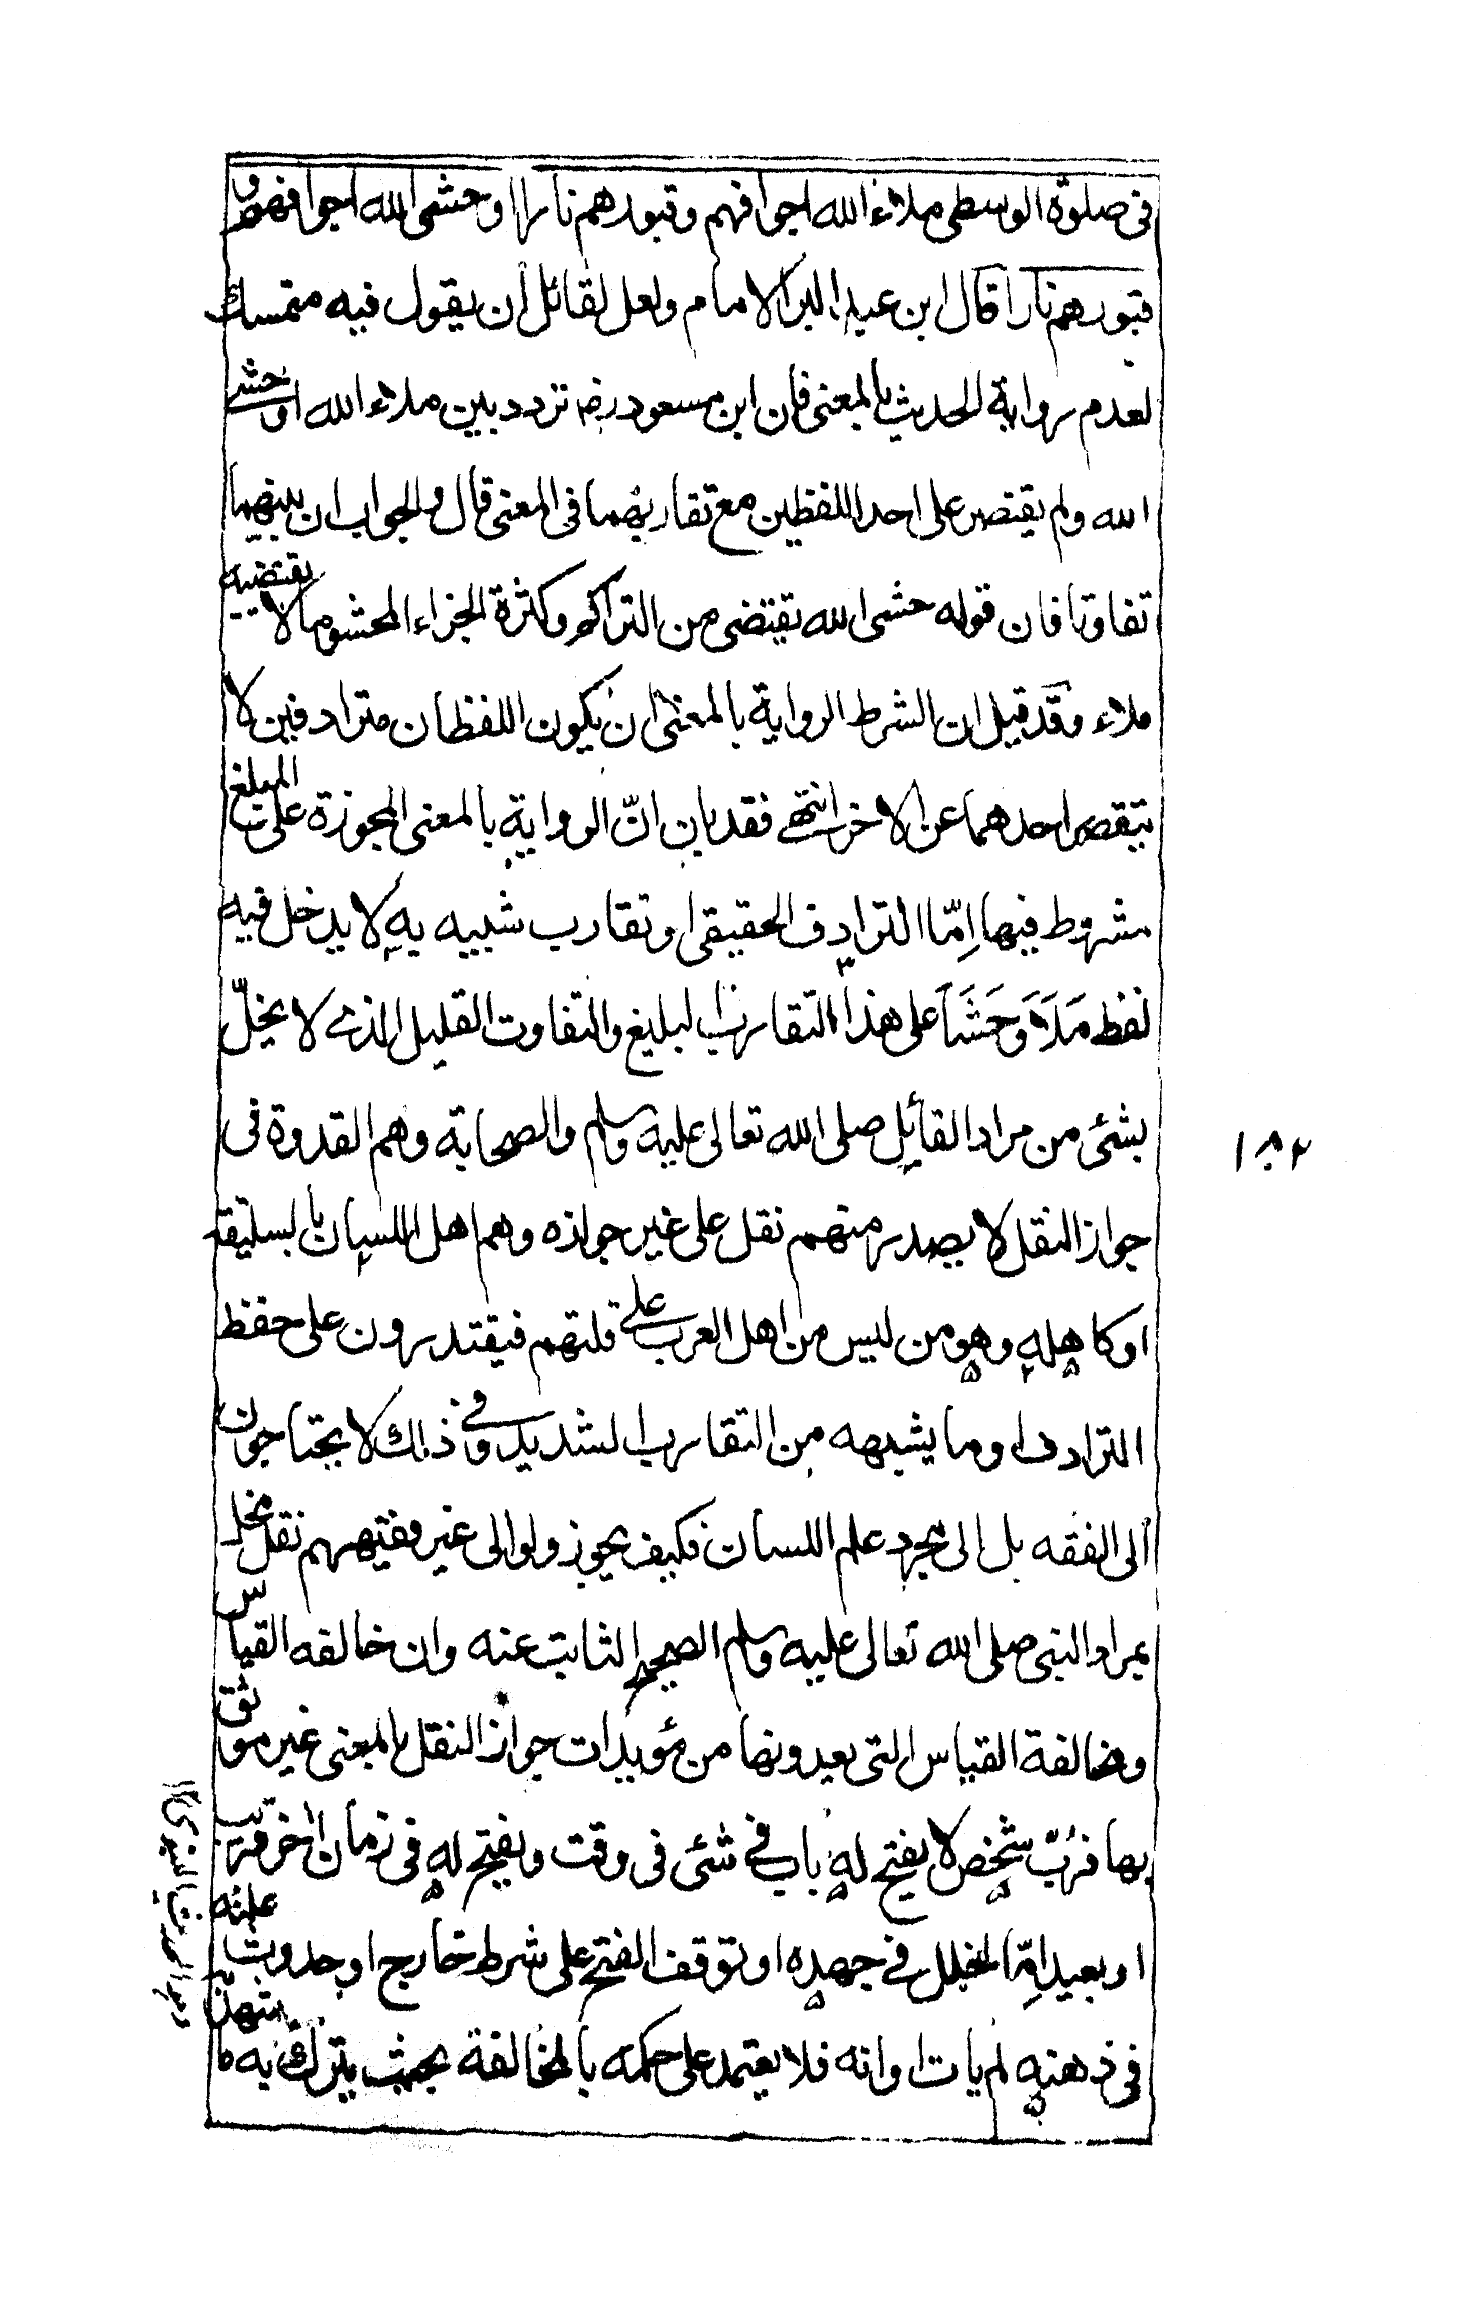 فى صلوٰة الوسطى ملاء الله اجوافهم وقبورهم نارا او حشى الله اجوافهم و
قبورهم نارا قال ابن عبد البر الامام ولعل لقائل أن يقول فيه متمسك
لعدم رواية الحديث بالمعنى فان ابن مسعود رضـ تردد بين ملاء الله او حشى
الله ولم يقتصر على احد اللفظين مع تقاربهما فى المعنى قال والجواب ان بينهما
تفاوتا فان قوله حشى الله يقتضى من التراكم وكثرة الجزاء المحشو مالا يقتضيه
ملاء وقد قيل ان الشرط الرواية بالمعنى ان يكون اللفظان مترادفين لا
يتقصر احدهما عن الاخر انتهى فقد بان انّ الرواية بالمعنى المجوزة على المبلغ
مشروط فيها اِمّا الترادف الحقيقى او تقارب شبيه به لا يدخل فيه
لفظ مَلَاَ وَحَشَاَ على هذا التقارب البليغ والتفاوت القليل الذى لا يخلّ
بشئ من مراد القائل صلى الله تعالى عليه وسلم والصحابة وهم القدوة فى
جواز النقل لا يصدر منهم نقل على غير جوازه وهم اهل اللسان بالسليقة
او كاهله وهو من ليس من اهل العرب على قلتهم فيقتدرون على حفظ
الترادف او ما يشبهه من التقارب الشديد وفى ذلك لا يحتاجون
الى الفقه بل الى مجرد علم اللسان فكيف يجوز ولو الى غير فقيههم نقل مخل
بمراد النبى صلى الله تعالى عليه وسلم الصحيح الثابت عنه وان خالفه القياس
ومخالفة القياس التى يعدونها من مؤيدات جواز النقل بالمعنى غير موثق
بها فرُبّ شخص لا يفتح له باب فى شئ فى وقت ويفتح له فى زمان اٰخر قريب
او بعيد اِمّا لخلل فى جهده او توقف الفتح على شرط خارج او حدوث علته
فى ذهنه لم يات اوانه فلا يعتمد على حكمه بالمخالفة بحيث يترك به ما
١٨٢